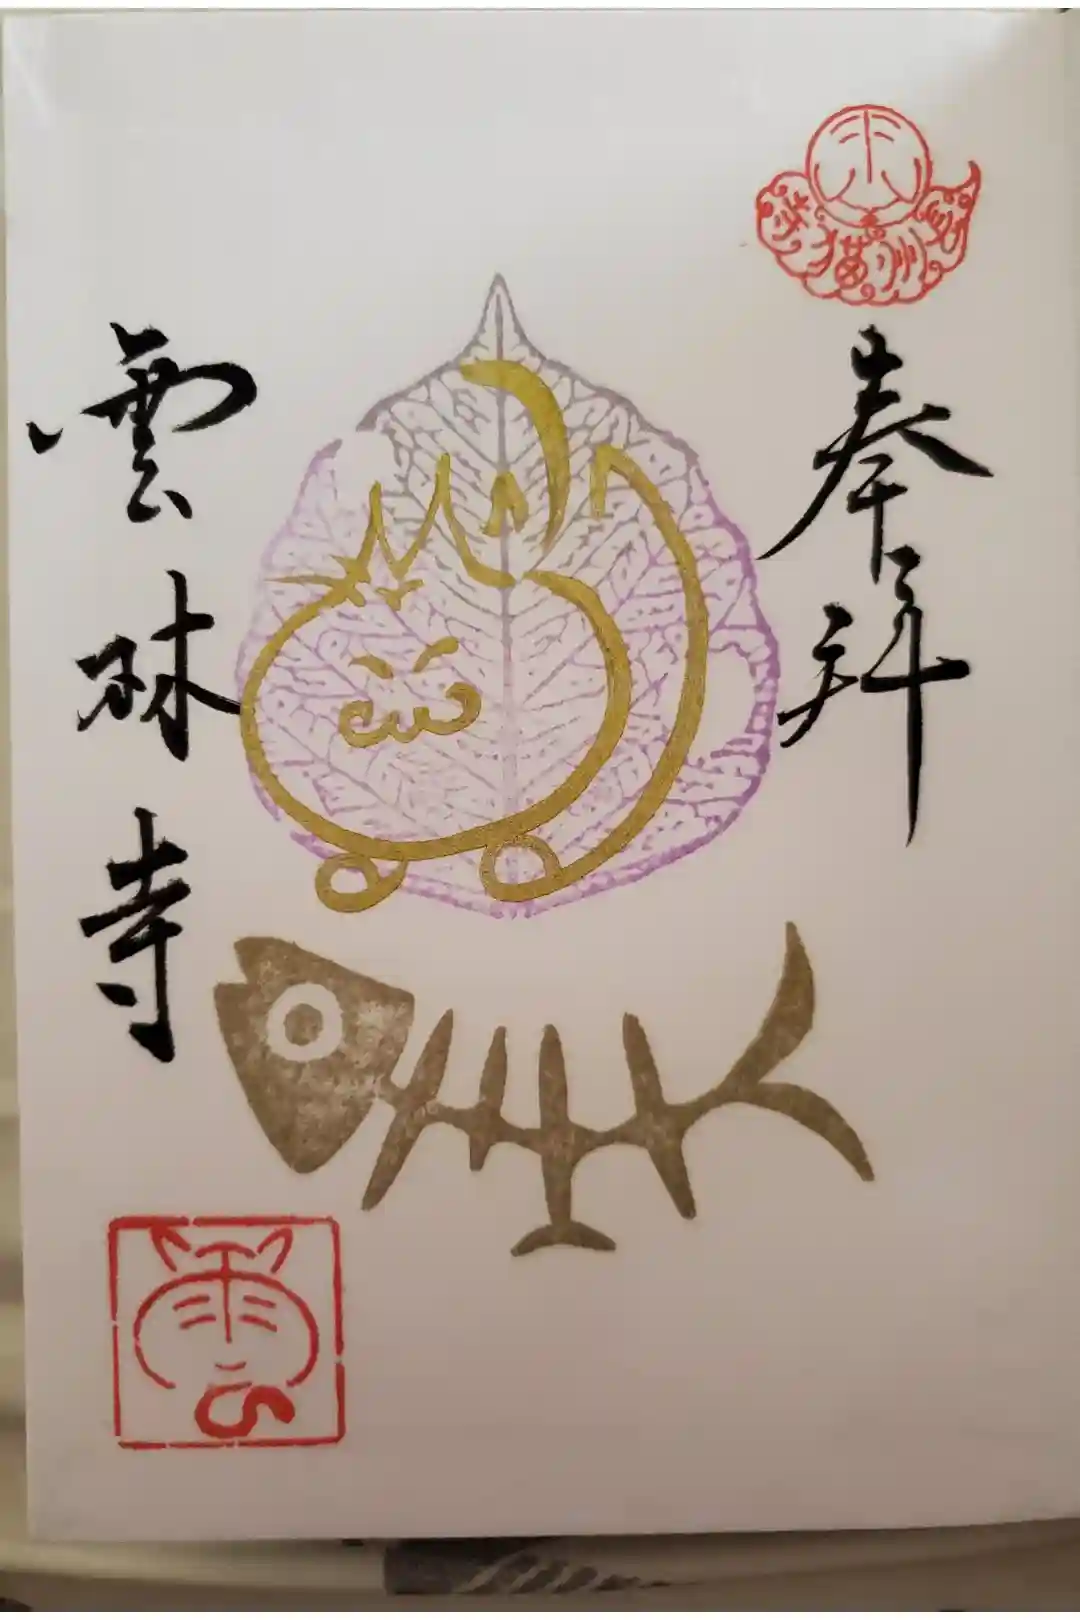 奉拝
雲林寺